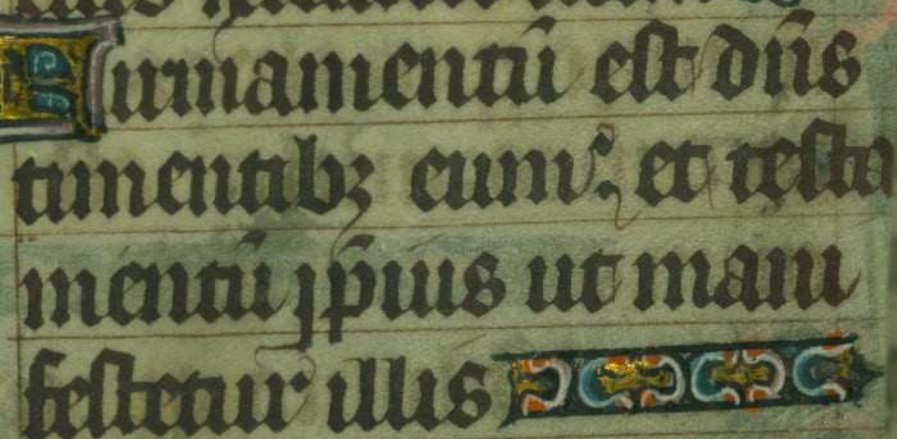 Firmamentū est dn̄s
timentibꝫ eum؛ et testa
mentū ip̄ius ut mani
festetur illis